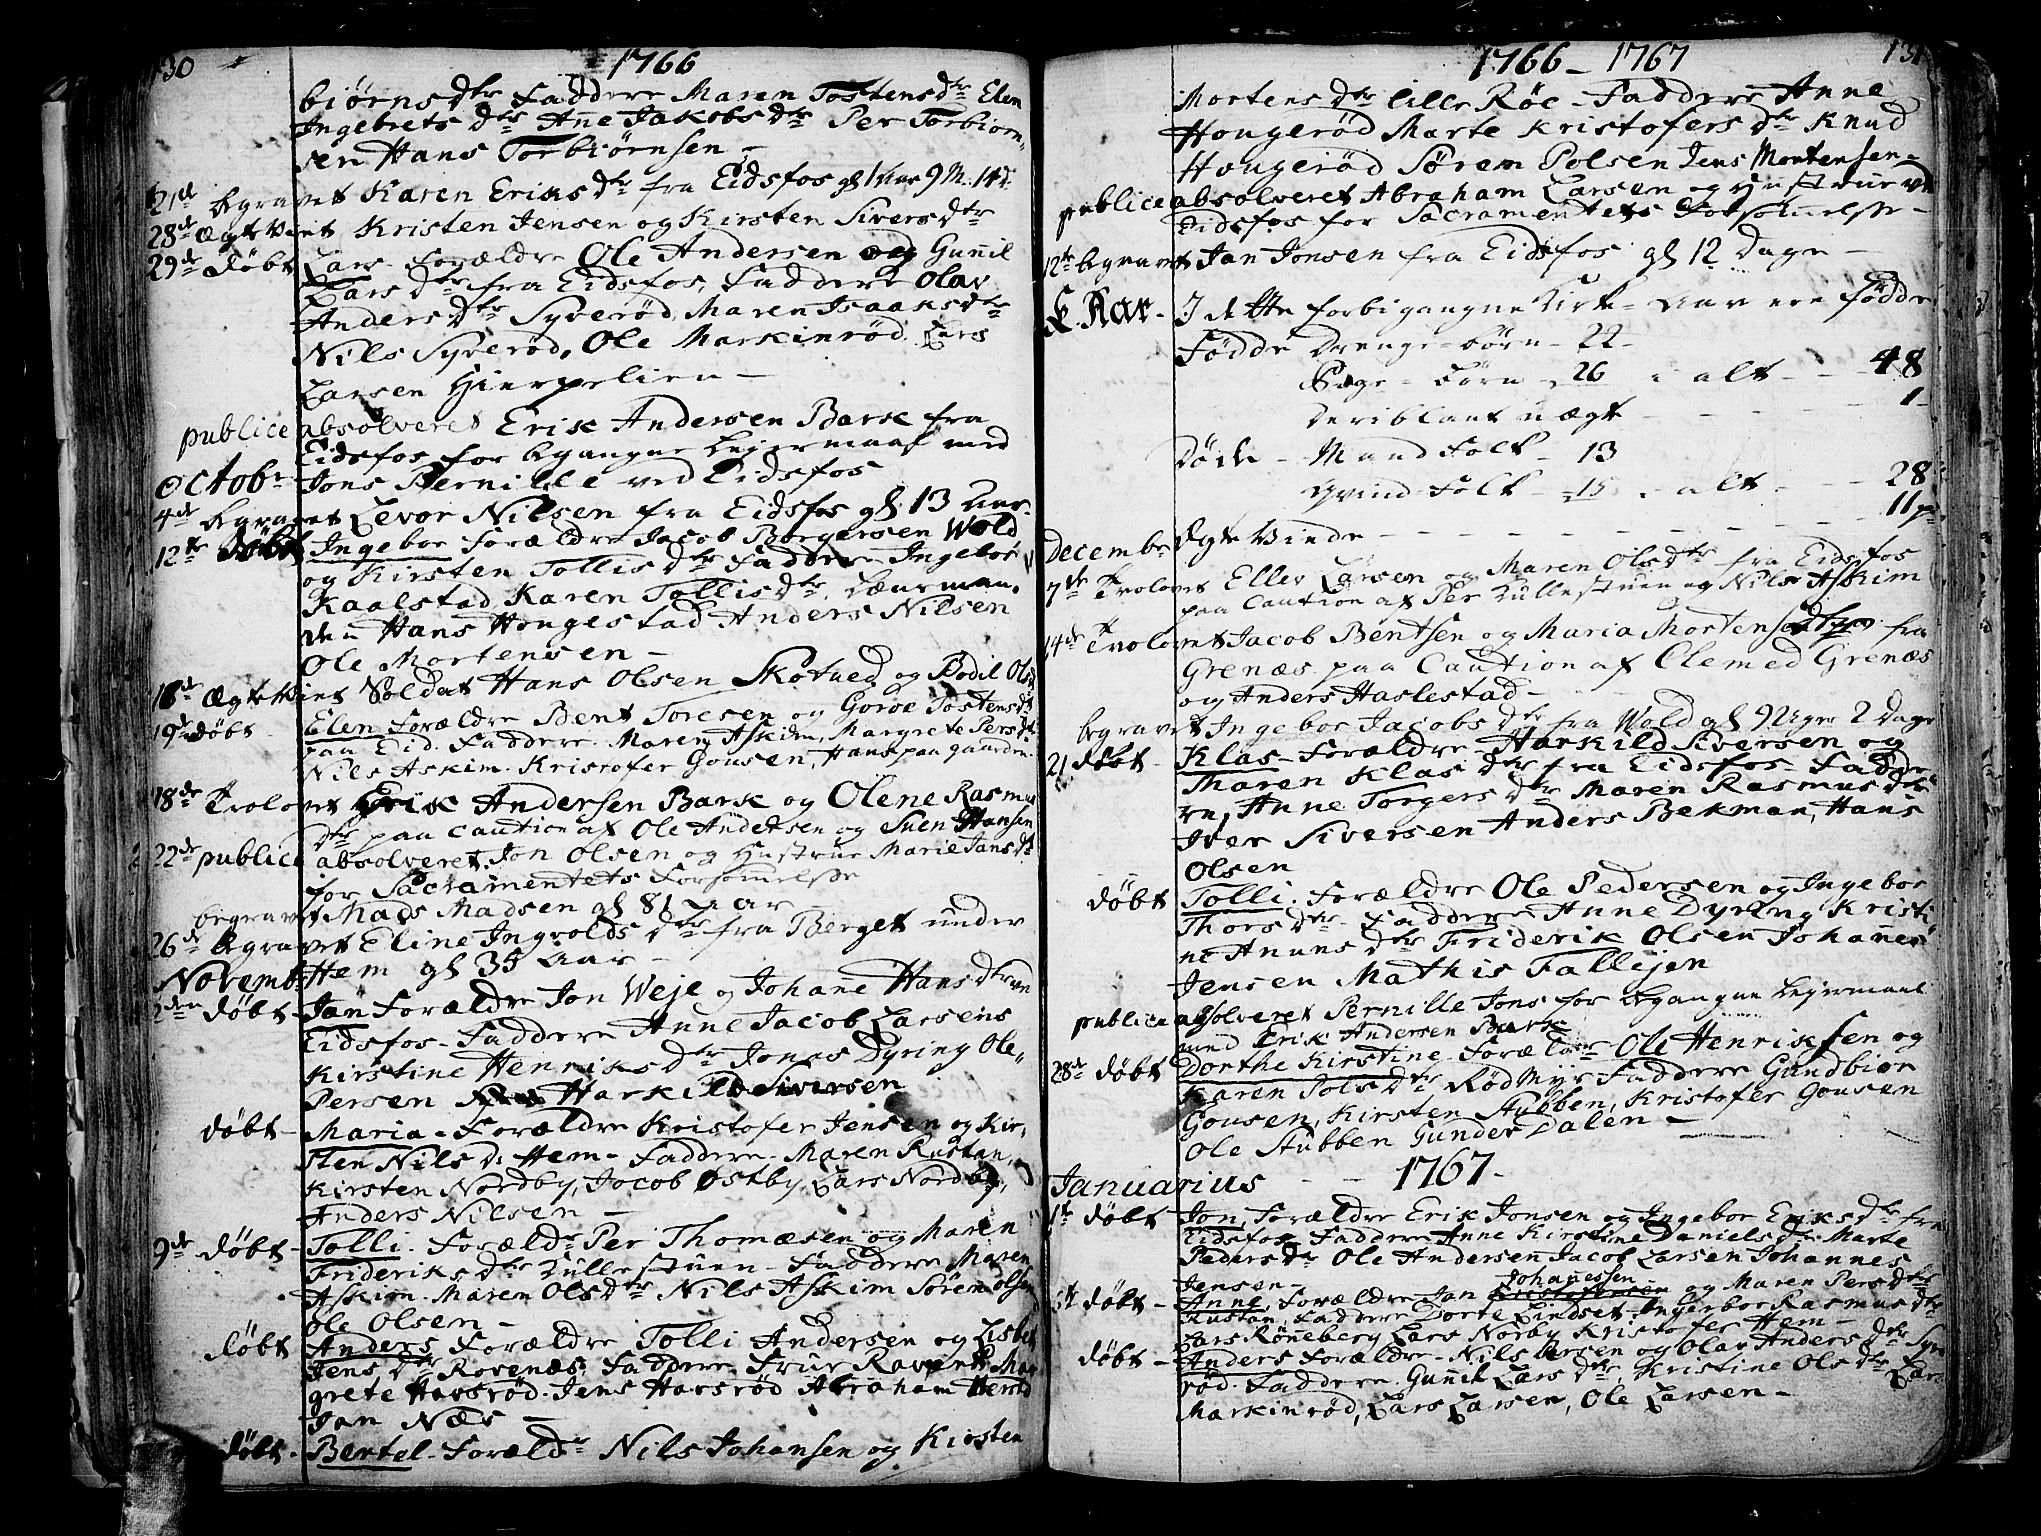 130
1766
biørnsdtr Faddere Maren Tostensdtr Elen
Ingebretsdtr Añe Jakobsdtr Per Torbiørn-
sen Hans Torbiørnsen -
21de Begravet Karen Eriksdtr fra Eidsfos gl 1 Aar 9 M. 14 d.
28de Ægte Viet Kristen Jensen og Kirsten Siversdtr
29de døbt Lars Forældre Ole Andersen og Guñil
Larsdtr fra Eidsfos, Faddere Olav
Andersdtr Syverød, Maren Isaaksdtr
Nils Syverød, Ole Markinrød Lars
Larsen Hierpelien -
publice absolveret Erik Andersen Bark fra
Eidsfos for begangne Leiermaal med
Octobr Jons Pernille ved Eidsfos
4de Begravet Levor Nilsen fra Eidsfos gl 13 Aar
12te døbt Ingebor Forældre Jacob Borgersen Wold
og Kirsten Tollisdtr Faddere Ingebor
Kaalstad Karen Tollisdtr, Lænsman-
den Hans Hougestad Anders Nilsen
Ole Mortensen -
16de Ægte Viet Soldat Hans Olsen Skotved og Bodil Olsd
19de døbt Elen Forældre Bent Toresen og Goroe Tostensdtr
paa Eid. Faddere Maren Askim, Margrete Persdtr
Nils Askim Kristofer Gousen, Hans paa gaarden
18de Trolovet Erik Andersen Bark og Olene Rasmus
dtr paa Caution af Ole Andersen og Suen Hansen
22de publice absolveret Jon Olsen og Hustrue Marie Jansdtr
for Sacramentets Forsømelse
begravet Mads Madsen gl 81 Aar -
26de Begravet Eline Ingvoldsdtr fra Berget under
Novemb Hem gl 35 Aar -
2den døbt Jan Forældre Jon Weje og Johane Hansdtr ved
Eidsfos - Faddere Anne Jacob Larsens
Kirstine Henriksdtr Jonas Dyring Ole
Persen Harkild Siversen
døbt - Maria - Forældre Kristofer Jensen og Kir-
sten Nilsd. Hem - Faddere Maren Rustan,
Kirsten Nordby, Jacob Østby Lars Nordby,
Anders Nilsen -
9de døbt - Tolli. Foræld Per Thomæsen og Maren
Frideriksdtr Hullestuen - Faddere Maren
Askim. Maren Olsdtr Nils Askim Søren Olsen
Ole Olsen -
døbt Anders Forældre Tolli Andersen og Lisbet
Jensdtr Rovenæs Faddere Frue Ravert Mar
grete Havsrød Jens Havsrød Abraham Hersta
Jan Næs -
døbt - Bertel - Foræld Nils Johansen og Kirsten
1766 - 1767
131
Mortensdtr lille Røe - Faddere Anne
Hougerød Marte Kristofersdtr Knud
Hougerød Søren Polsen Jens Mortensen -
publice absolveret Abraham Larsen og Hustrue ved
Eidsfos for Sacramentets Forsømelse -
12te begravet Jan Jonsen fra Eidsfos gl 12 Dage -
K. Aar - I dette forbigangne Kirke-Aar ere Fødde
Fødde Drenge-børn - 22 -
Pige-børn - 26 i alt - - 48
Deriblant uægte - - - - 1
Døde - Mand Folk - 13
Qvind-Folk - 15 i alt - - 28
Decembr Ægte Viede - - - - - - 11 p
7de Trolovet Eller Larsen og Maren Olsdtr fra Eidsfos
paa Caution af Per Hullestuen og Nils Askim
14de Trolovet Jacob Bentsen og Maria Mortens fra
Grenæs paa Caution af Clemed Grenæs
og Anders Haslestad -
begravet Ingebor Jacobsdtr fra Wold gl 9 Uger 2 Dage
21 døbt - Klas - Forældre - Harkild Siversen og
Maren Klasdtr fra Eidsfos Fadde
re, Anne Torgersdtr Maren Rasmusdtr
Iver Siversen Anders Bekman, Hans
Olsen
døbt Tolli. Forældre Ole Pedersen og Ingebor
Thorsdtr - Faddere Anne Dyring Kristi
ne Anunsdtr Friderik Olsen Johañes
Jensen Mathis Tallejen
publice absolveret Pernille Jons for begangne Leiermaal
med Erik Andersen Bark
28de døbt Dorthe Kirstine - Forældre Ole Henriksen og
Karen Polsdtr Rød Myr Faddere Gundbior
Gousen, Kirsten Stubben, Kristofer Gousen
Ole Stubben Gunder Dalen -
Januarius - - 1767 -
1te døbt - Jon, Forældre Erik Jonsen og Ingebor Eriksdtr fra
Eidsfos Faddere Anne Kirstine Danielsdtr Marte
Pedersdtr Ole Andersen Jacob Larsen Johannes
Jensen -
døbt - Anne, Forældre Jan Kristofersen Johañessen og Maren Persdtr
Rustan, Faddere Dorte Lindset Ingerbor Rasmusdtr
Lars Røneberg Lars Norby Kristofer Hem -
døbt - Anders Forældre - Nils Larsen og Olav Andersdtr Syve
rød Faddere Guñil Larsdtr, Kristine Olsdtr Lars
Markinrød, Lars Larsen, Ole Larsen -